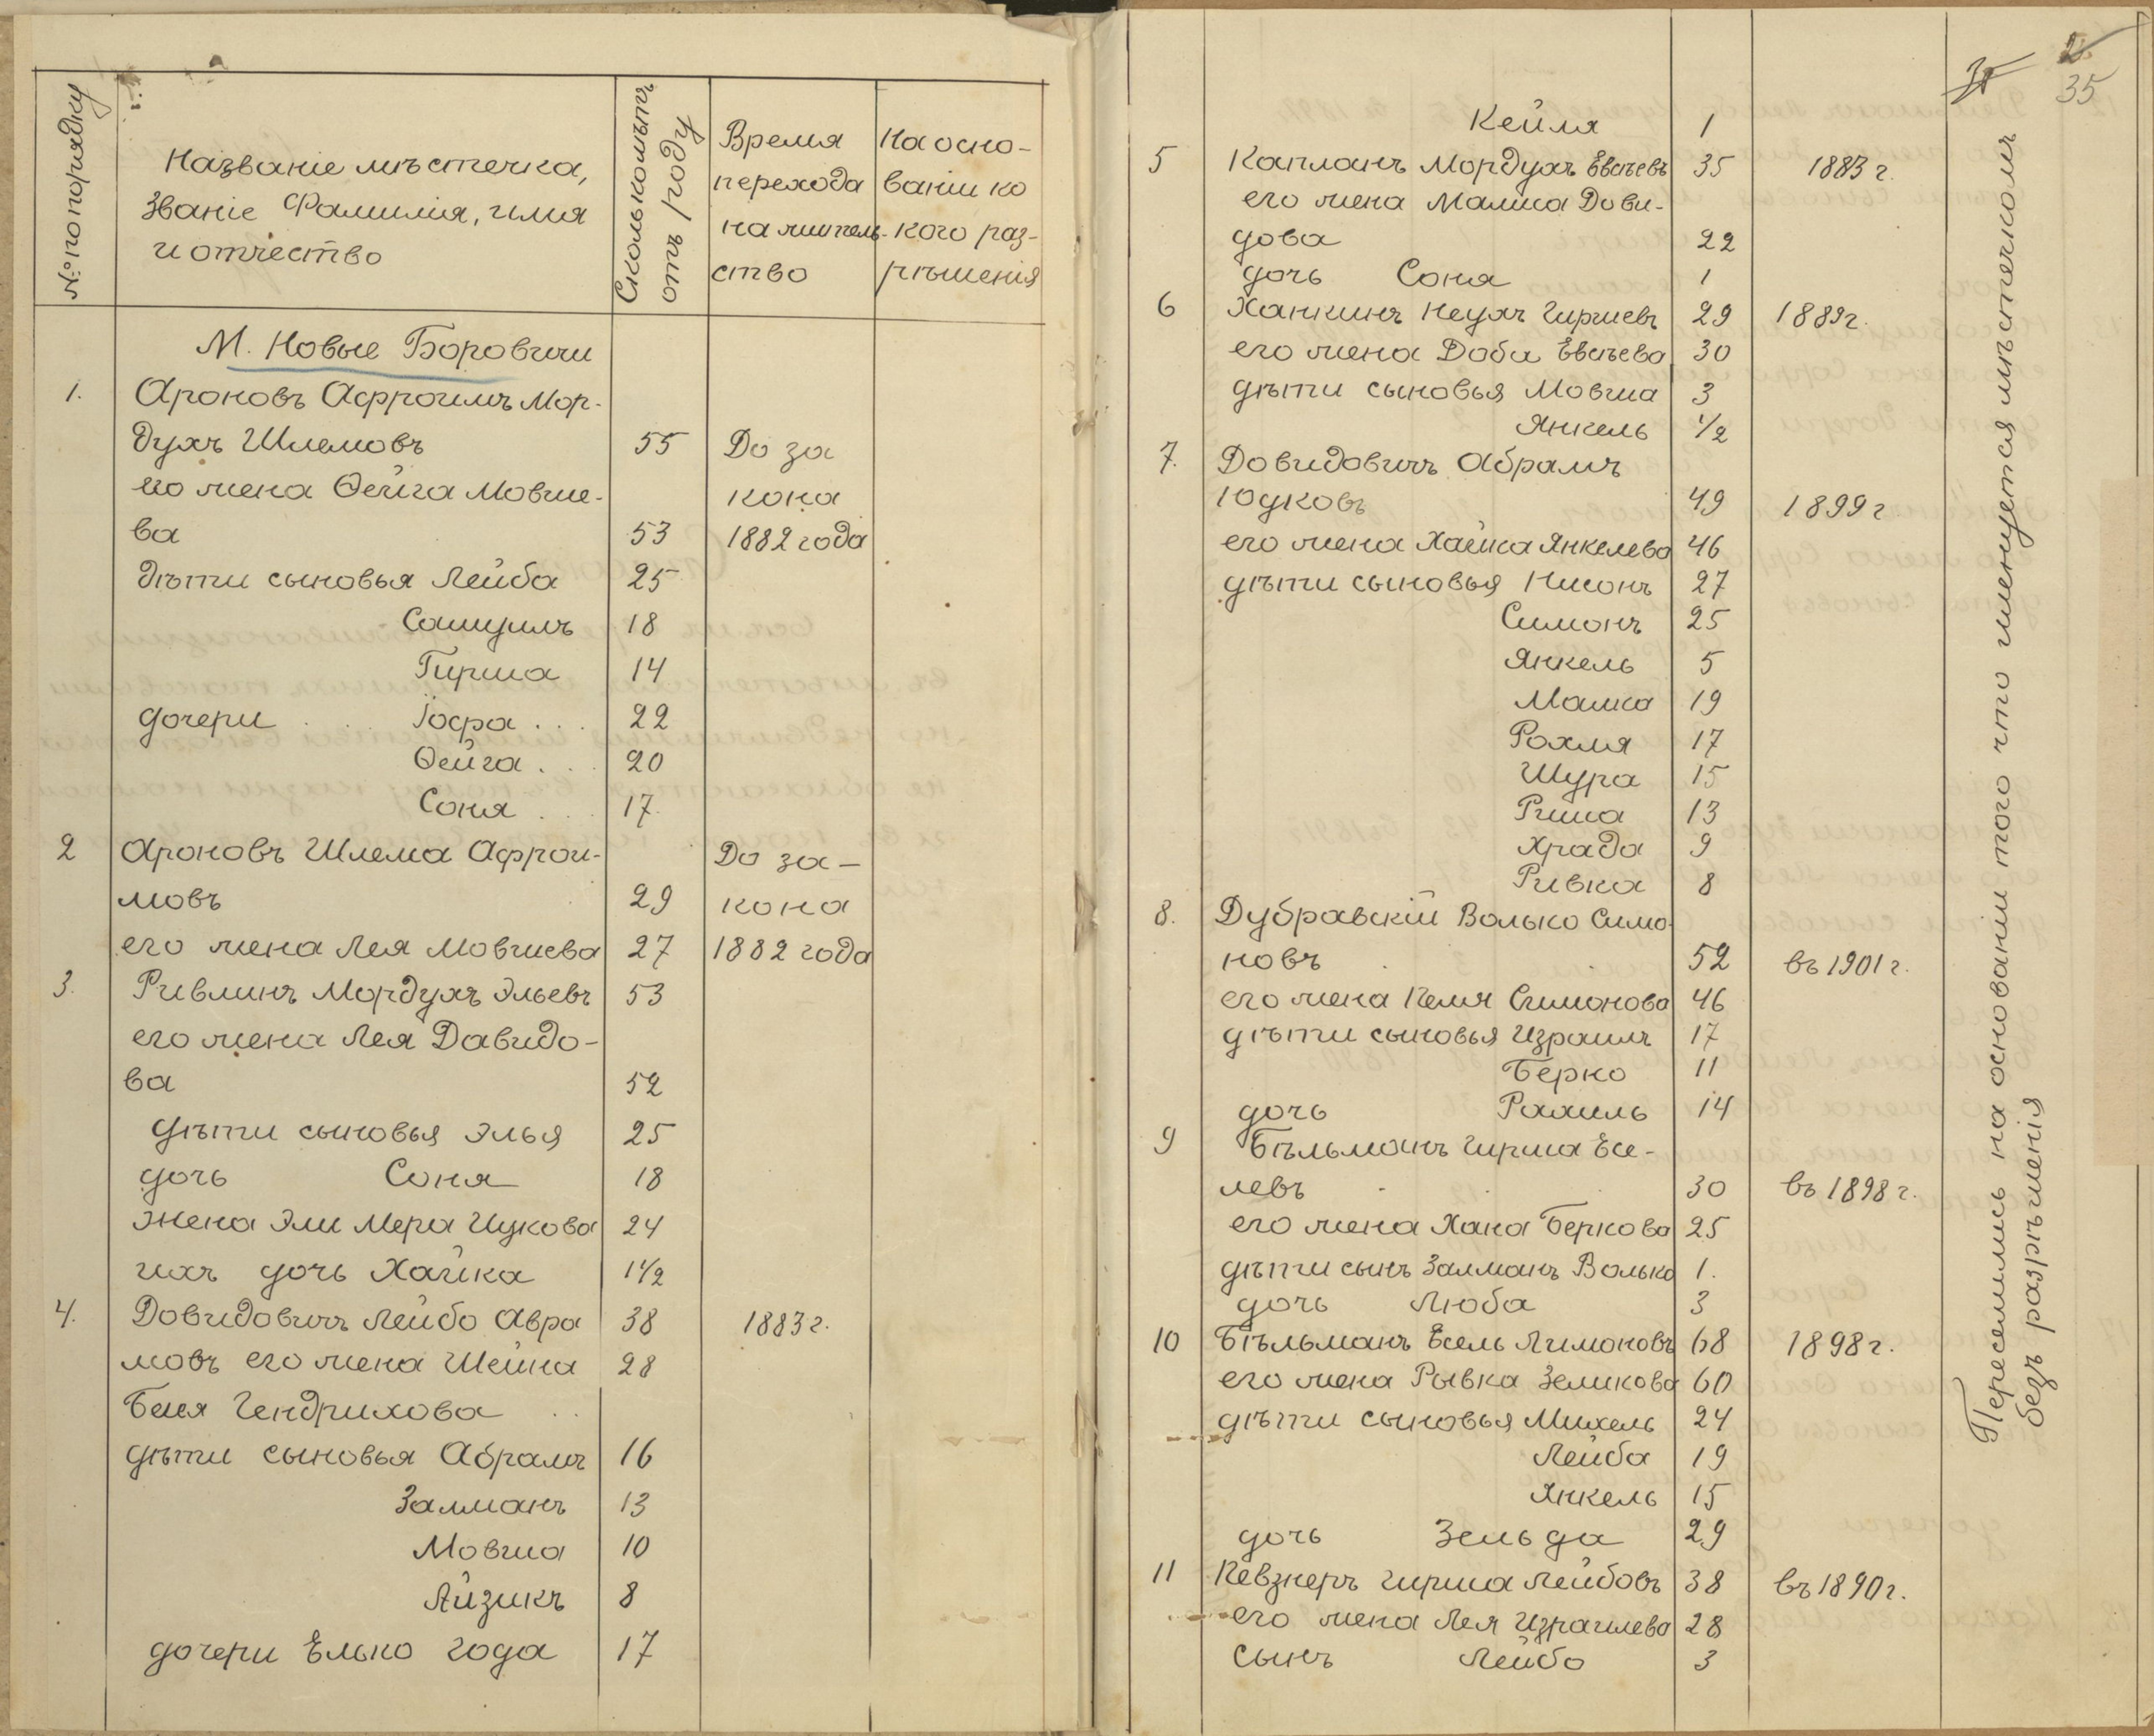 № по порядку
Названіе мѣстечка,
Званіе Фамилія, имя
и отчество
Сколько лѣтъ
отъ роду
Время
перехода
на житель-
ство
На осно-
ваніи ка
кого раз-
рѣшенія
М. Новые Боровичи
1.
Ароновъ Афроимъ Мор-
духъ Шлемовъ 55 До за
его жена Фейга Мовше- кона
ва 53 1882 года
дѣти сыновья Лейба 25
Самуилъ 18
Гирша 14
дочери Іосфа 22
Фейга 20
Соня 17
2 Ароновъ Шлема Афрои- До за-
мовъ 29 кона
его жена Лея Мовшева 27 1882 года
3. Ривлинъ Мордухъ Эльевъ 53
его жена Лея Давидо-
ва 52
дѣти сыновья Элья 25
дочь Соня 18
Жена Эли Мера Ицкова 24
ихъ дочь Хайка 1½
4. Довидовичъ Лейбо Авра 38 1883 г.
мовъ его жена Шейна 28
Бейля Гендрихова
дѣти сыновья Абрамъ 16
Залманъ 13
Мовша 10
Айзикъ 8
дочери Елько Года 17
35
35
Кейля 1
5 Капланъ Мордухъ Евсѣевъ 35 1883 г.
его жена Малка Дови-
дова 22
дочь Соня 1
6 Ханкинъ Неухъ Гиршевъ 29 1889 г.
его жена Доба Евсѣева 30
дѣти сыновья Мовша 3
Янкель ½
7. Довидовичъ Абрамъ
Юдковъ 49 1899 г
его жена Хайка Янкелева 46
дѣти сыновья Нисонъ 27
Симонъ 25
Янкель 5
Малка 19
Рохля 17
Шура 15
Риша 13
Храда 9
Ривка 8
8. Дубравскій Волько Симо-
новъ 52 въ 1901 г.
его жена Геля Симонова 46
дѣти сыновья Израиль 17
Берко 11
дочь Рахиль 14
9 Бѣльманъ Гирша Есе-
левъ 30 въ 1898 г.
его жена Хана Беркова 25
дѣти сынъ Залманъ Волько 1.
дочь Люба 3
10 Бѣльманъ Есель Лимоновъ 68 1898 г.
его жена Рывка Зеликова 60
дѣти сыновья Михель 24
Лейба 19
Янкель 15
дочь Зельда 29
11 Певзнеръ Гирша Лейбовъ 38 въ 1890 г.
его жена Лея Израилева 28
Сынъ Лейбо 3
Переселились на основаніи того что именуется мѣстечкомъ
безъ разрѣшенія